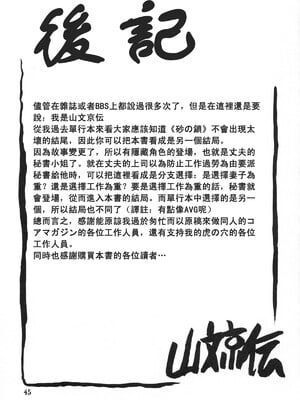 後記
儘管在雜誌或者BBS上都說過很多次了，但是在這裡還是要
說：我是山文京伝
從我過去單行本來看大家應該知道《砂の鎖》不會出現太
壞的結尾，因此你可以把本書看成是另一個結局。
因為故事變更了，所以有隱藏角色的登場，也就是丈夫的
秘書小姐了，就在丈夫的上司以為防止工作過勞為由要派
秘書給他時，可以把這裡看成是分支選擇：是選擇妻子為
重？還是選擇工作為重？要是選擇工作為重的話，秘書就
會登場，從而進入本書的結局。而單行本中選擇的是另一
個，所以結局也不同了（譯註：有點像AVG呢）
總而言之，感謝能原諒我過於匆忙而以原稿來做同人的コ
アマガジン的各位工作人員，還有支持我的虎の穴的各位工
作人員。
同時也感謝購買本書的各位讀者…
山文京伝
45